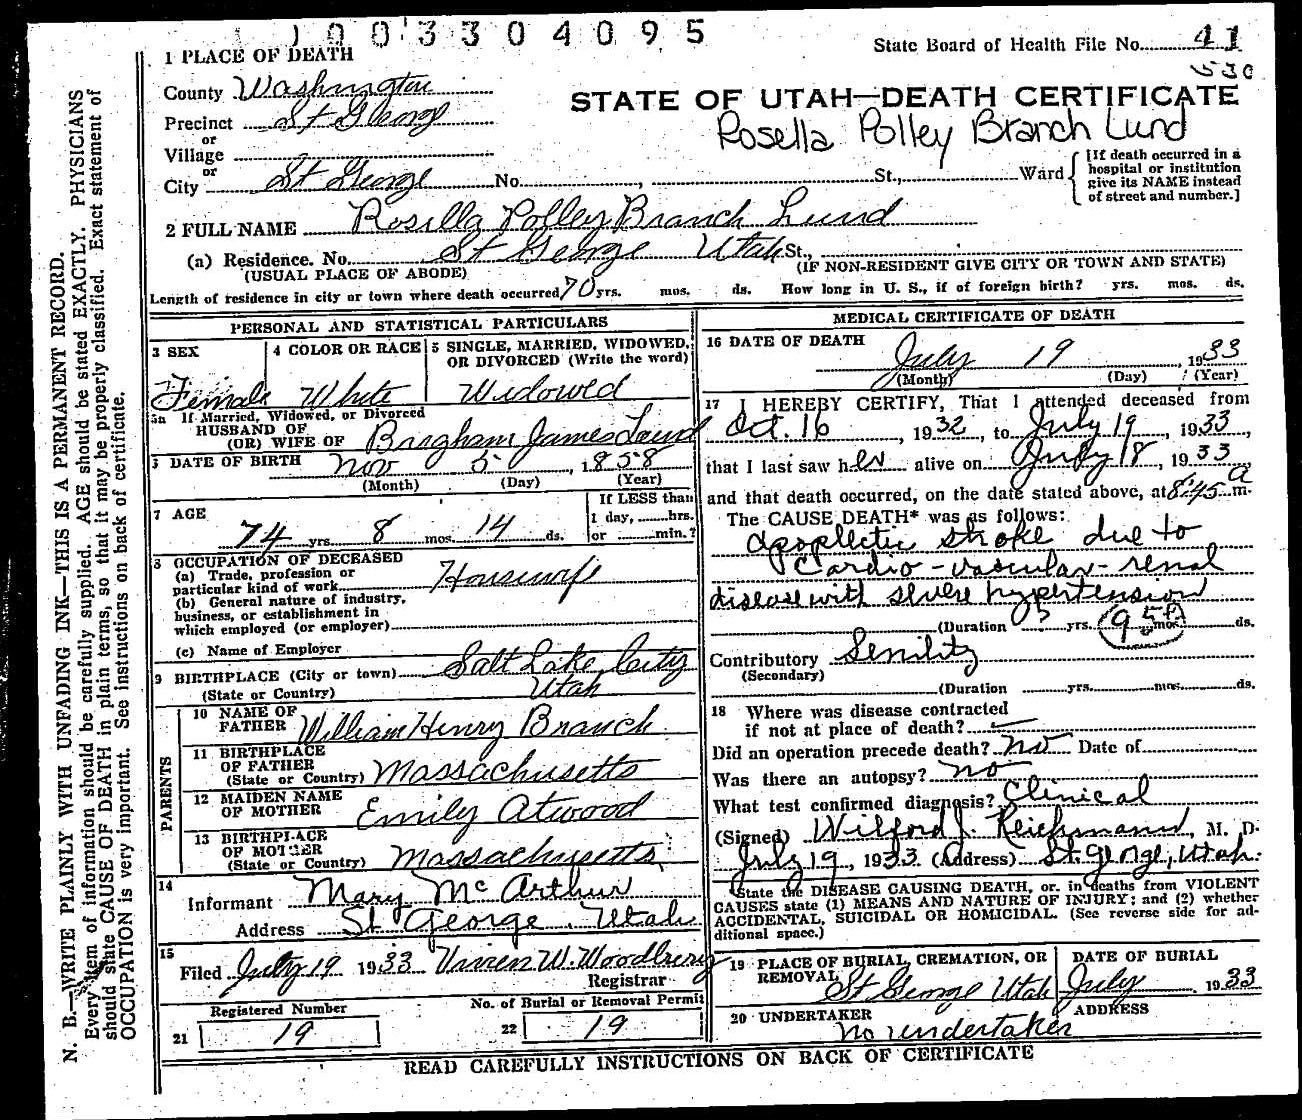 1003304095
State Board of Health File No. 41
530
1 PLACE OF DEATH
County Washington
STATE OF UTAH—DEATH CERTIFICATE
Precinct St George
Rosella Polley Branch Lund
or
Village
or
City St George No. , St., Ward
[If death occurred in a
hospital or institution
give its NAME instead
of street and number.]
2 FULL NAME Rosilla Polley Branch Lund
(a) Residence. No. St George Utah St.,
(USUAL PLACE OF ABODE) (IF NON-RESIDENT GIVE CITY OR TOWN AND STATE)
Length of residence in city or town where death occurred 70 yrs. mos. ds. How long in U. S., if of foreign birth? yrs. mos. ds.
PERSONAL AND STATISTICAL PARTICULARS
3 SEX
Female
4 COLOR OR RACE
White
5 SINGLE, MARRIED, WIDOWED,
OR DIVORCED (Write the word)
Widowed
5a If Married, Widowed, or Divorced
HUSBAND OF
(OR) WIFE OF Brigham James Lund
DATE OF BIRTH Nov 5 , 1858
(Month) (Day) (Year)
7 AGE
74 yrs. 8 mos. 14 ds.
If LESS than
1 day, hrs.
or min.?
8 OCCUPATION OF DECEASED
(a) Trade, profession or
particular kind of work Housewife
(b) General nature of industry,
business, or establishment in
which employed (or employer)
(c) Name of Employer
9 BIRTHPLACE (City or town) Salt Lake City
(State or Country) Utah
PARENTS
10 NAME OF
FATHER William Henry Branch
11 BIRTHPLACE
OF FATHER
(State or Country) Massachusetts
12 MAIDEN NAME
OF MOTHER Emily Atwood
13 BIRTHPLACE
OF MOTHER
(State or Country) Massachusetts
14
Informant Mary McArthur
Address St George, Utah
15
Filed July 19 1933 Vivien W. Woodbury
Registrar
Registered Number
21 19
No. of Burial or Removal Permit
22 19
MEDICAL CERTIFICATE OF DEATH
16 DATE OF DEATH
July 19 , 1933
(Month) (Day) (Year)
17 I HEREBY CERTIFY, That I attended deceased from
Oct. 16 , 1932, to July 19, 1933,
that I last saw her alive on July 18, 1933
and that death occurred, on the date stated above, at 8:45 a m.
The CAUSE DEATH* was as follows:
apoplectic stroke due to
cardio-vascular-renal
disease with severe hypertension
(Duration yrs. mos. ds.
Contributory Senility
(Secondary)
(Duration yrs. mos. ds.
18 Where was disease contracted
if not at place of death?
Did an operation precede death? no Date of
Was there an autopsy? no
What test confirmed diagnosis? Clinical
(Signed) Wilford J. Reichmann, M. D.
July 19, 1933. (Address) St. George, Utah.
*State the DISEASE CAUSING DEATH, or. in deaths from VIOLENT
CAUSES state (1) MEANS AND NATURE OF INJURY; and (2) whether
ACCIDENTAL, SUICIDAL OR HOMICIDAL. (See reverse side for ad-
ditional space.)
19 PLACE OF BURIAL, CREMATION, OR
REMOVAL
St George Utah
DATE OF BURIAL
July , 1933
20 UNDERTAKER
no undertaker
ADDRESS
READ CAREFULLY INSTRUCTIONS ON BACK OF CERTIFICATE
N. B.—WRITE PLAINLY WITH UNFADING INK—THIS IS A PERMANENT RECORD.
Every item of information should be carefully supplied. AGE should be stated EXACTLY. PHYSICIANS
should state CAUSE OF DEATH in plain terms, so that it may be properly classified. Exact statement of
OCCUPATION is very important. See instructions on back of certificate.